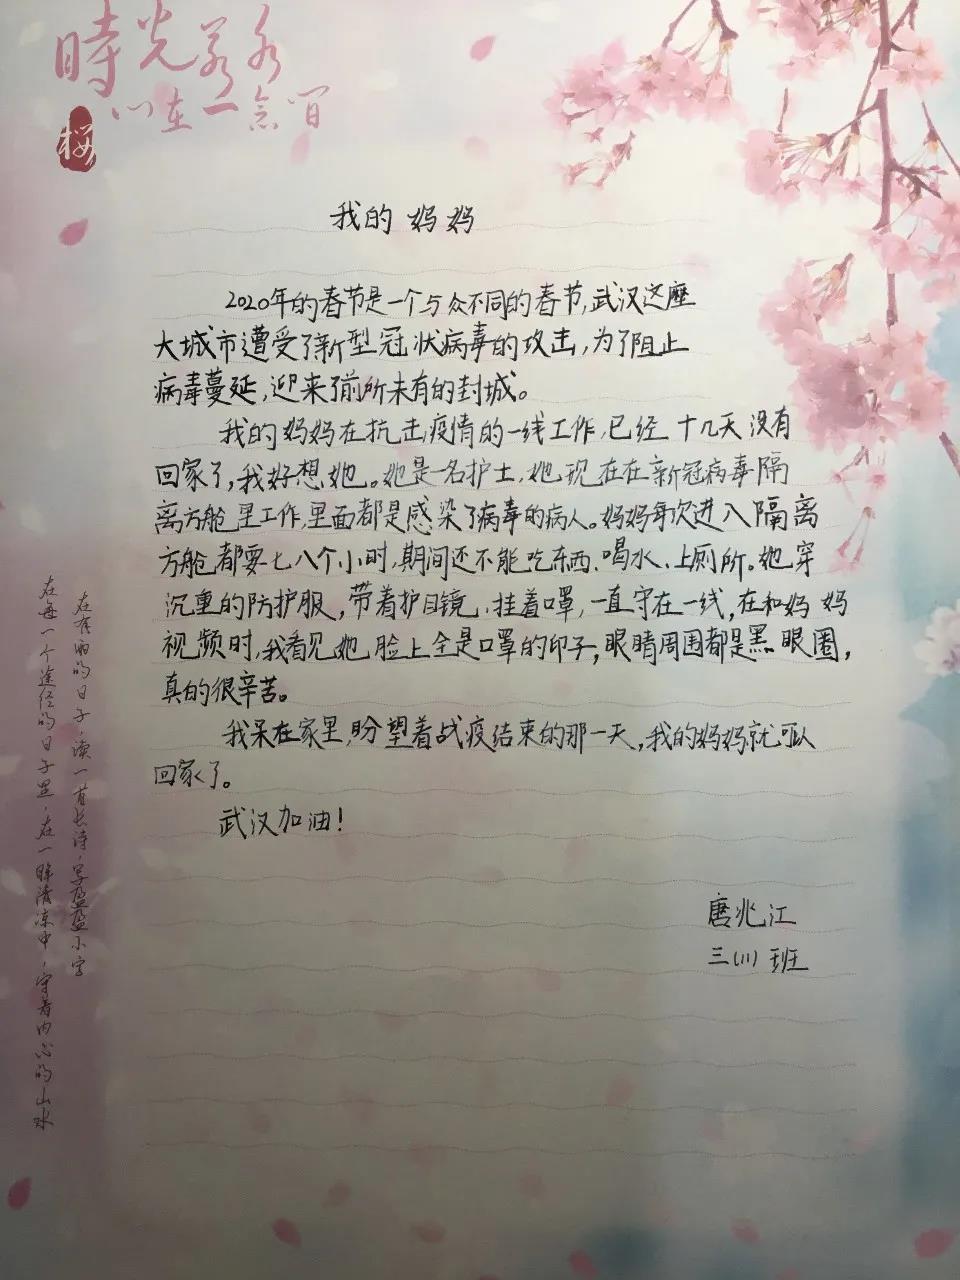 時光若水
心在一念间
樱
我的妈妈
2020年的春节是一个与众不同的春节,武汉这座
大城市遭受了新型冠状病毒的攻击,为了阻止
病毒蔓延,迎来了前所未有的封城。
我的妈妈在抗击疫情的一线工作,已经十几天没有
回家了,我好想她。她是一名护士,她现在在新冠病毒隔
离方舱里工作,里面都是感染了病毒的病人。妈妈每次进入隔离
方舱都要七八个小时,期间还不能吃东西、喝水、上厕所。她穿
沉重的防护服,带着护目镜、挂着口罩,一直守在一线,在和妈妈
视频时,我看见她脸上全是口罩的印子,眼睛周围都是黑眼圈,
真的很辛苦。
我呆在家里,盼望着战疫结束的那一天,我的妈妈就可以
回家了。
武汉加油!
唐兆江
三(11)班
在有雨的日子,读一首长诗,写盈盈小字
在每一个途经的日子里,在一眸清凉中,守着内心的山水